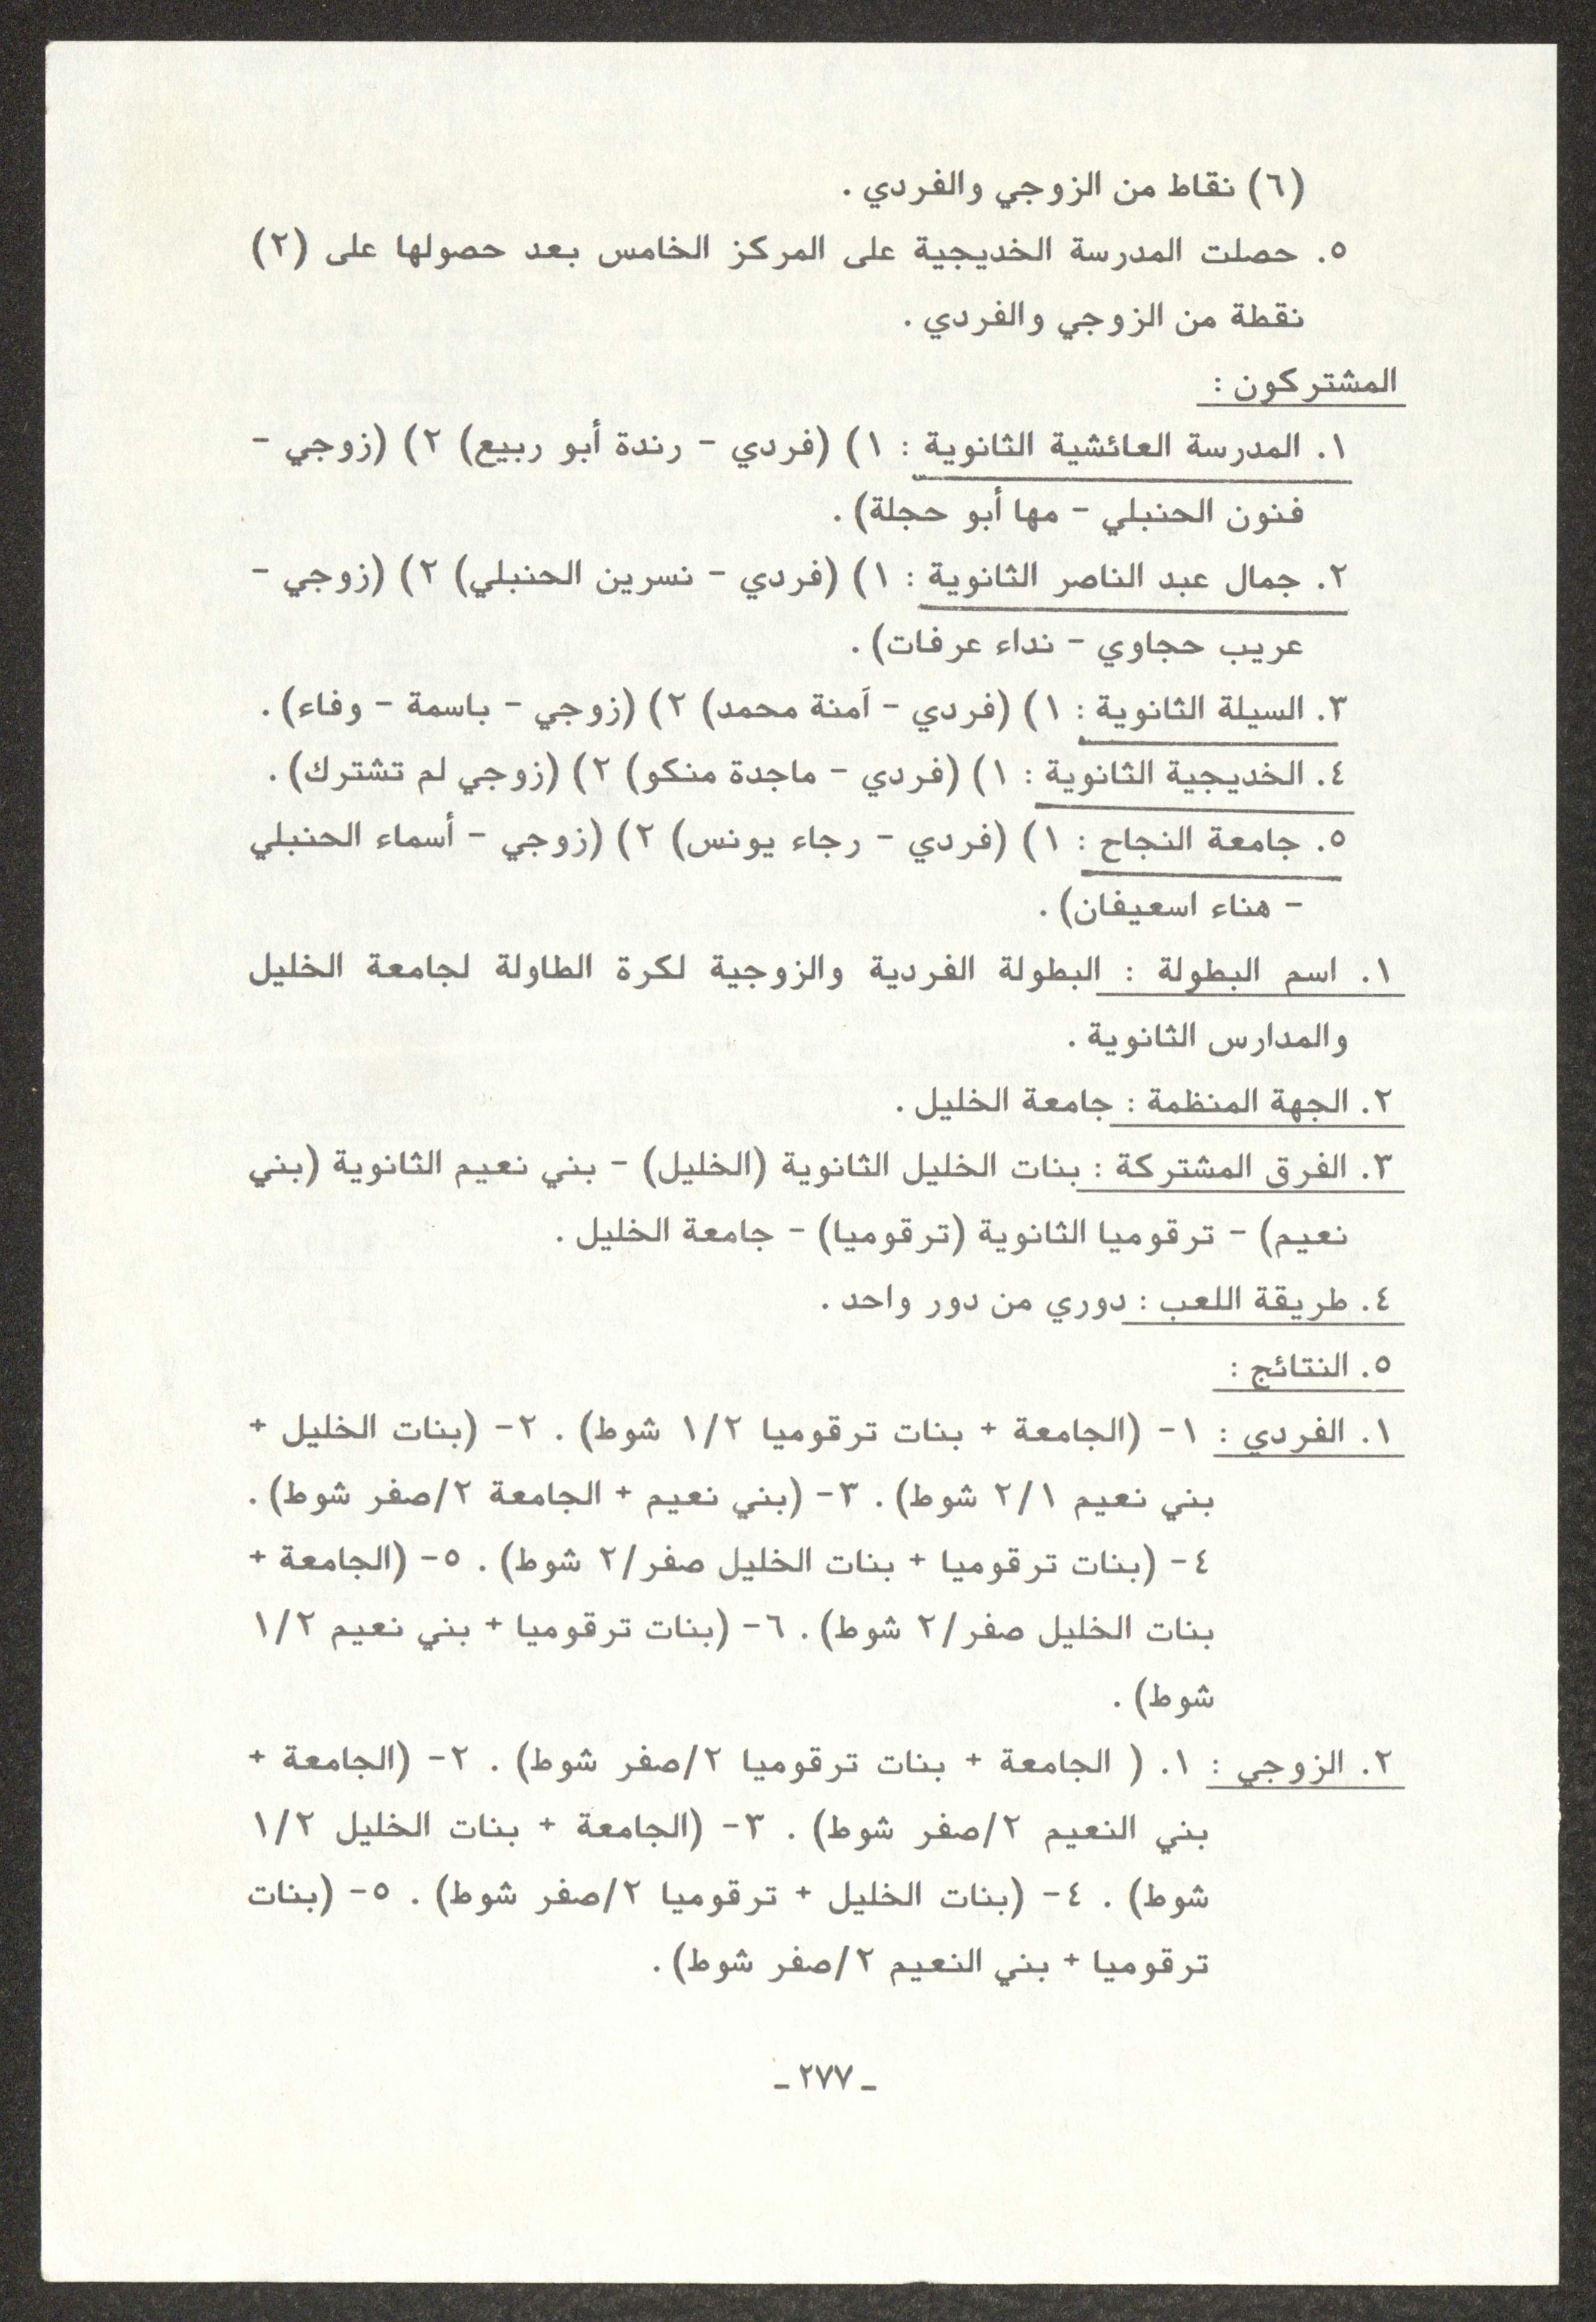 (٦) نقاط من الزوجي والفردي .
٥. حصلت المدرسة الخديجية على المركز الخامس بعد حصولها على (٢)
نقطة من الزوجي والفردي .
المشتركون :
١. المدرسة العائشية الثانوية : ١) (فردي - رندة أبو ربيع) ٢) (زوجي -
فنون الحنبلي - مها أبو حجلة) .
٢. جمال عبد الناصر الثانوية : ١) (فردي - نسرين الحنبلي) ٢) (زوجي -
عريب حجاوي - نداء عرفات) .
٣. السيلة الثانوية : ١) (فردي - آمنة محمد) ٢) (زوجي - باسمة - وفاء) .
٤. الخديجية الثانوية : ١) (فردي - ماجدة منكو) ٢) (زوجي لم تشترك) .
٥. جامعة النجاح : ١) (فردي - رجاء يونس) ٢) (زوجي - أسماء الحنبلي
- هناء اسعيفان) .
١. اسم البطولة : البطولة الفردية والزوجية لكرة الطاولة لجامعة الخليل
والمدارس الثانوية .
٢. الجهة المنظمة : جامعة الخليل .
٣. الفرق المشتركة : بنات الخليل الثانوية (الخليل) - بني نعيم الثانوية (بني
نعيم) - ترقوميا الثانوية (ترقوميا) - جامعة الخليل .
٤. طريقة اللعب : دوري من دور واحد .
٥. النتائج :
١. الفردي : ١- (الجامعة + بنات ترقوميا ١/٢ شوط) . ٢- (بنات الخليل +
بني نعيم ٢/١ شوط) . ٣- (بني نعيم + الجامعة ٢/صفر شوط) .
٤- (بنات ترقوميا + بنات الخليل صفر/٢ شوط) . ٥- (الجامعة +
بنات الخليل صفر/٢ شوط) . ٦- (بنات ترقوميا + بني نعيم ١/٢
شوط) .
٢. الزوجي : ١. ( الجامعة + بنات ترقوميا ٢/صفر شوط) . ٢- (الجامعة +
بني النعيم ٢/صفر شوط) . ٣- (الجامعة + بنات الخليل ١/٢
شوط) . ٤- (بنات الخليل + ترقوميا ٢/صفر شوط) . ٥- (بنات
ترقوميا + بني النعيم ٢/صفر شوط) .
ـ ٢٧٧ ـ